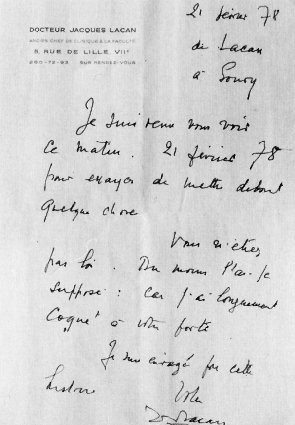 DOCTEUR JACQUES LACAN
ANCIEN CHEF DE CLINIQUE A LA FACULTÉ
5, RUE DE LILLE. VIIe
260-72-93 SUR RENDEZ-VOUS
21 février 78
de Lacan
à Soury
Je suis venu vous voir
ce matin. 21 février 78
pour essayer de mettre debout
quelque chose
Vous n'étiez
pas là. Du moins l'ai-je
supposé : car j'ai longuement
"Cogné" à votre porte
Je suis enragé par cette
histoire
Votre
J. Lacan